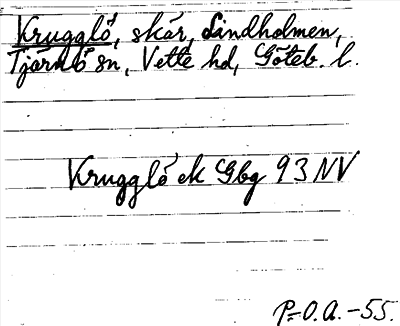 Krugglö, skär, Lindholmen,
Tjärnö sn, Vette hd, Göteb. l.
Krugglö ek Gbg 93 NV
P-O.A.-55.